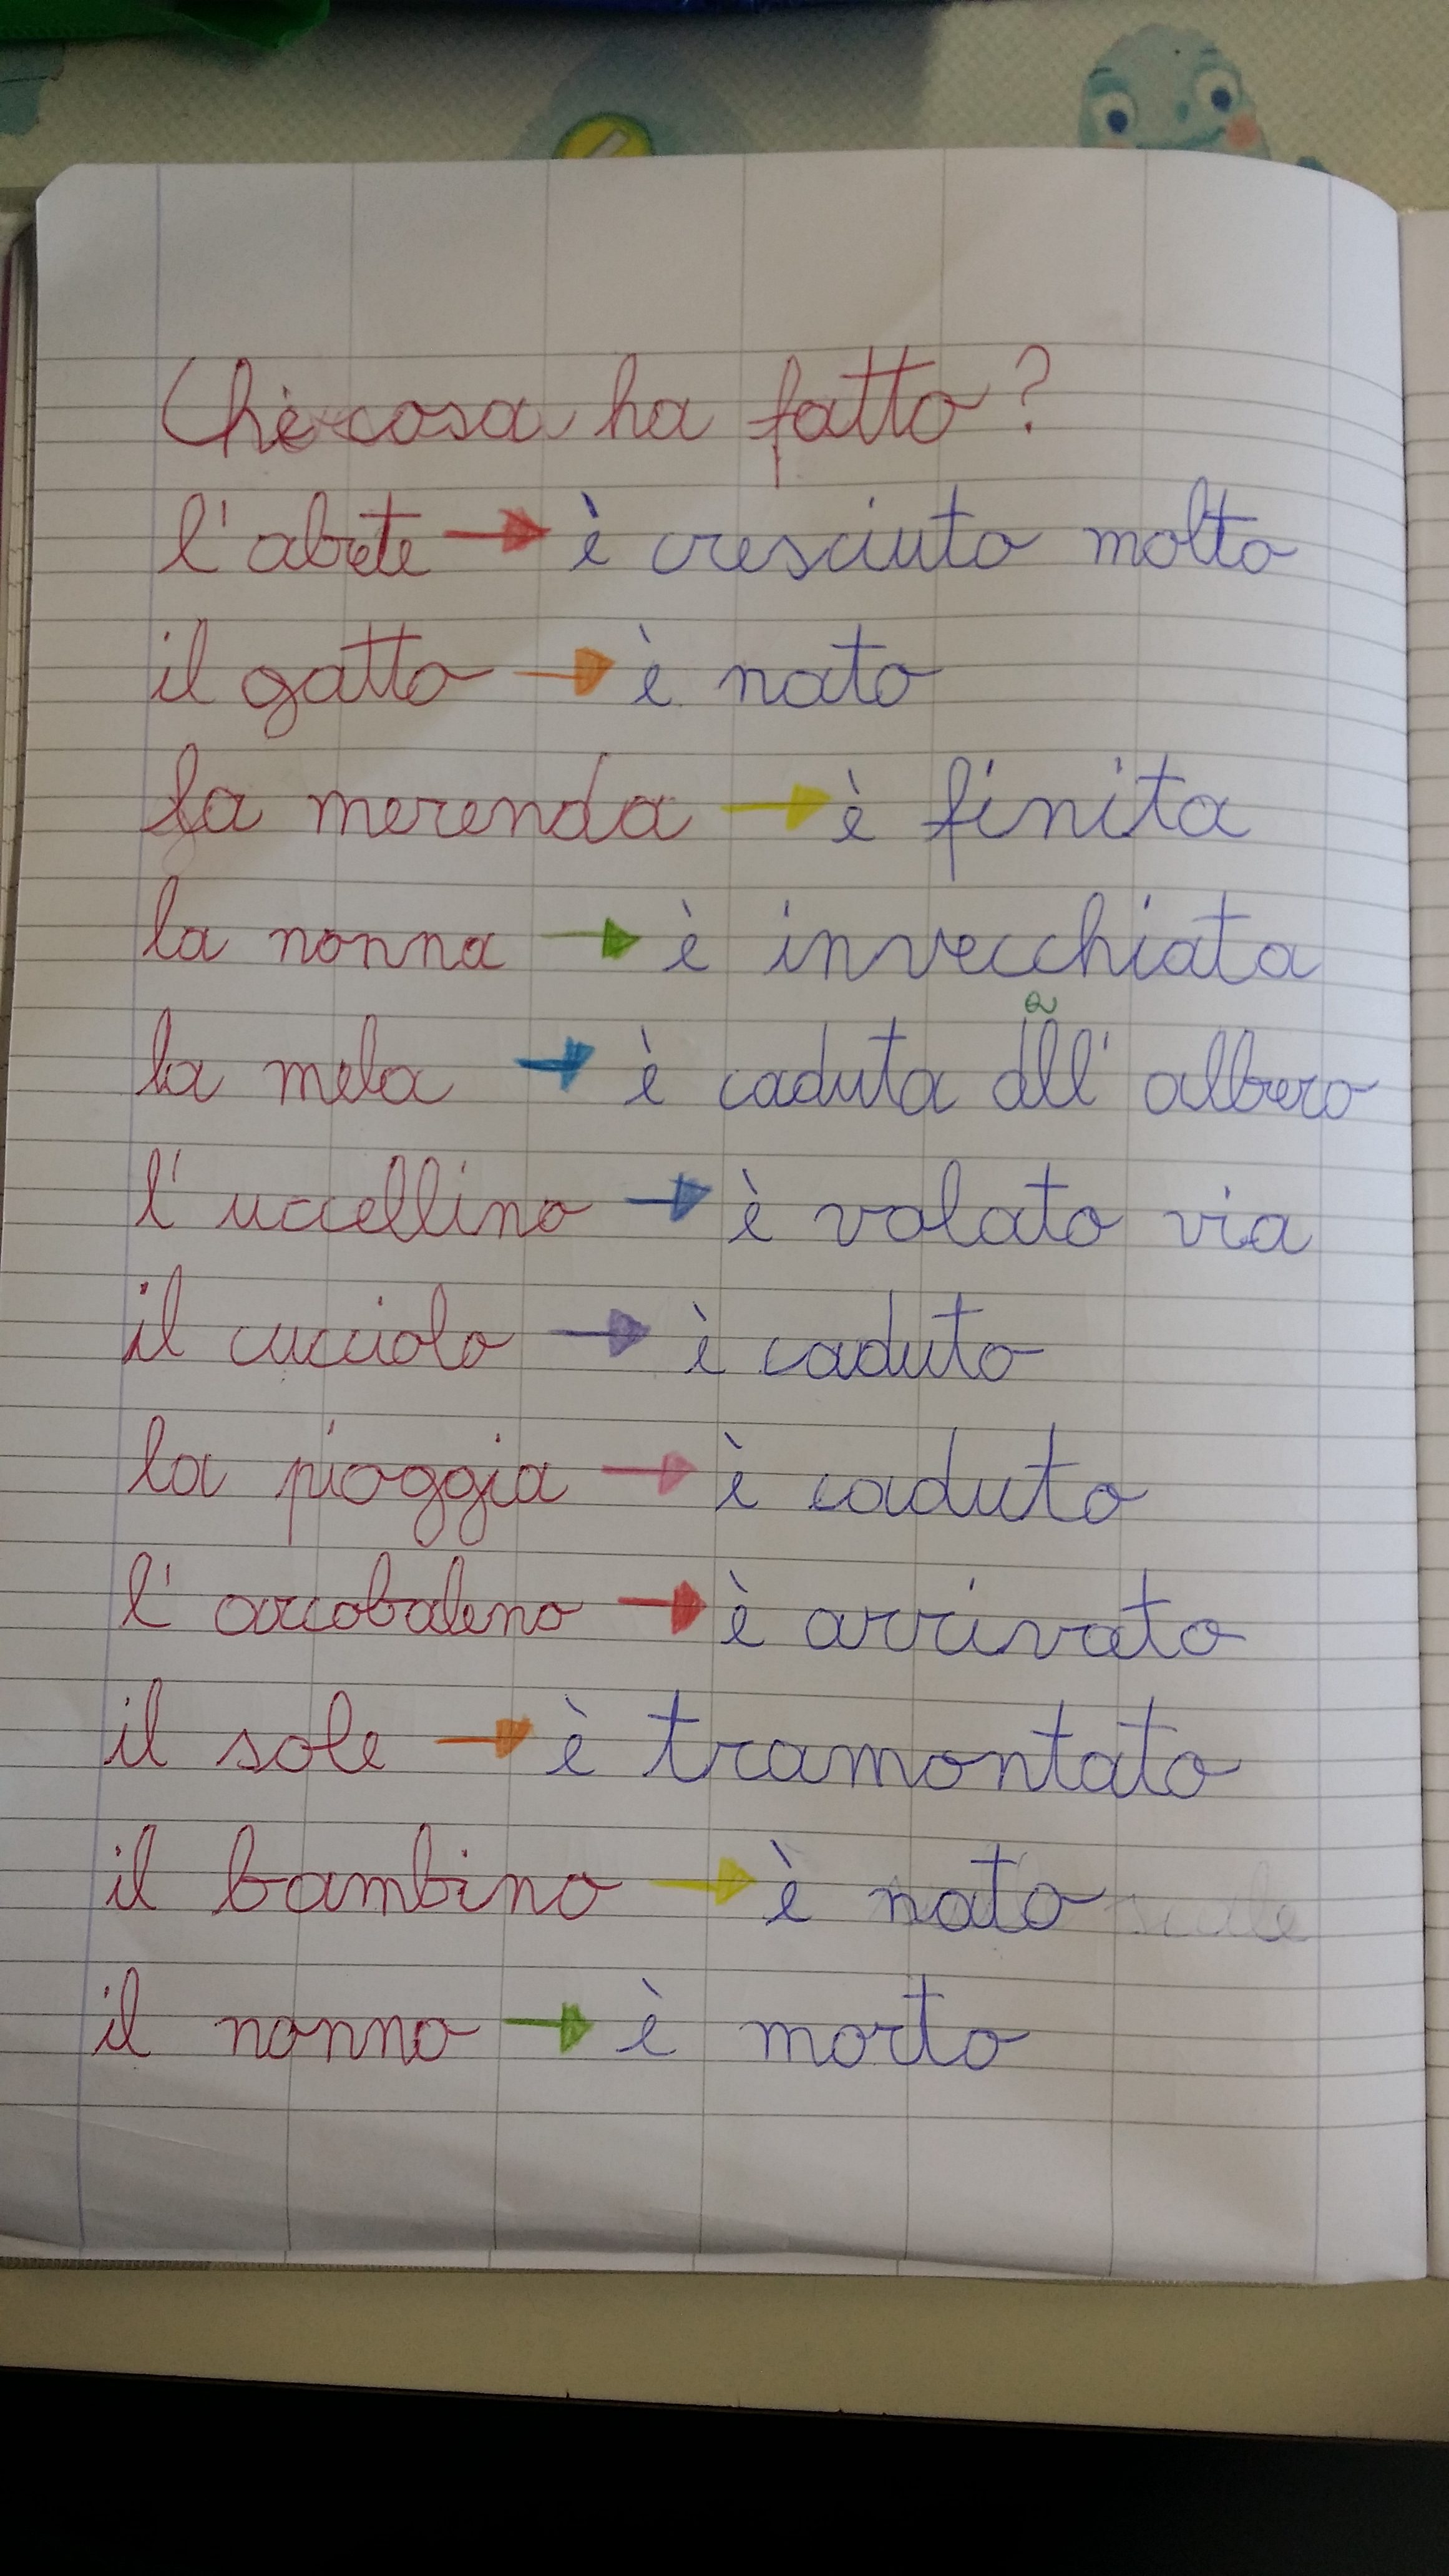 Che cosa ha fatto?
l'abete → è cresciuto molto
il gatto → è nato
la merenda → è finita
la nonna → è invecchiata
la mela → è caduta dall' albero
l'uccellino → è volato via
il cucciolo → è caduto
la pioggia → è caduto
l'arcobaleno → è arrivato
il sole → è tramontato
il bambino → è nato
il nonno → è morto